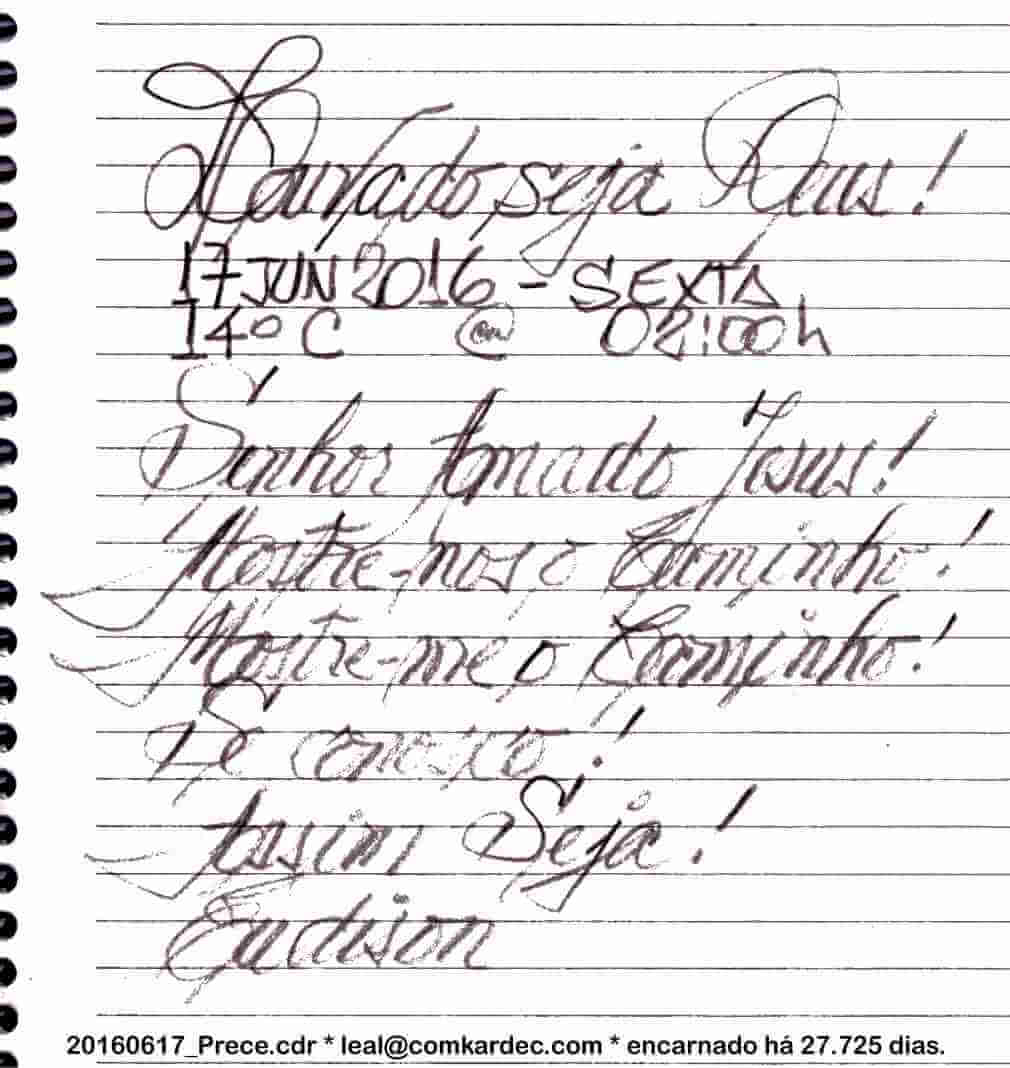 Louvado seja Deus!
17 JUN 2016 - SEXTA
14º C @ 02:00h
Senhor Amado Jesus!
Mostre-nos o Caminho!
Mostre-me o Caminho!
Sê conosco!
Assim Seja!
Eudison
20160617_Prece.cdr * leal@comkardec.com * encarnado há 27.725 dias.